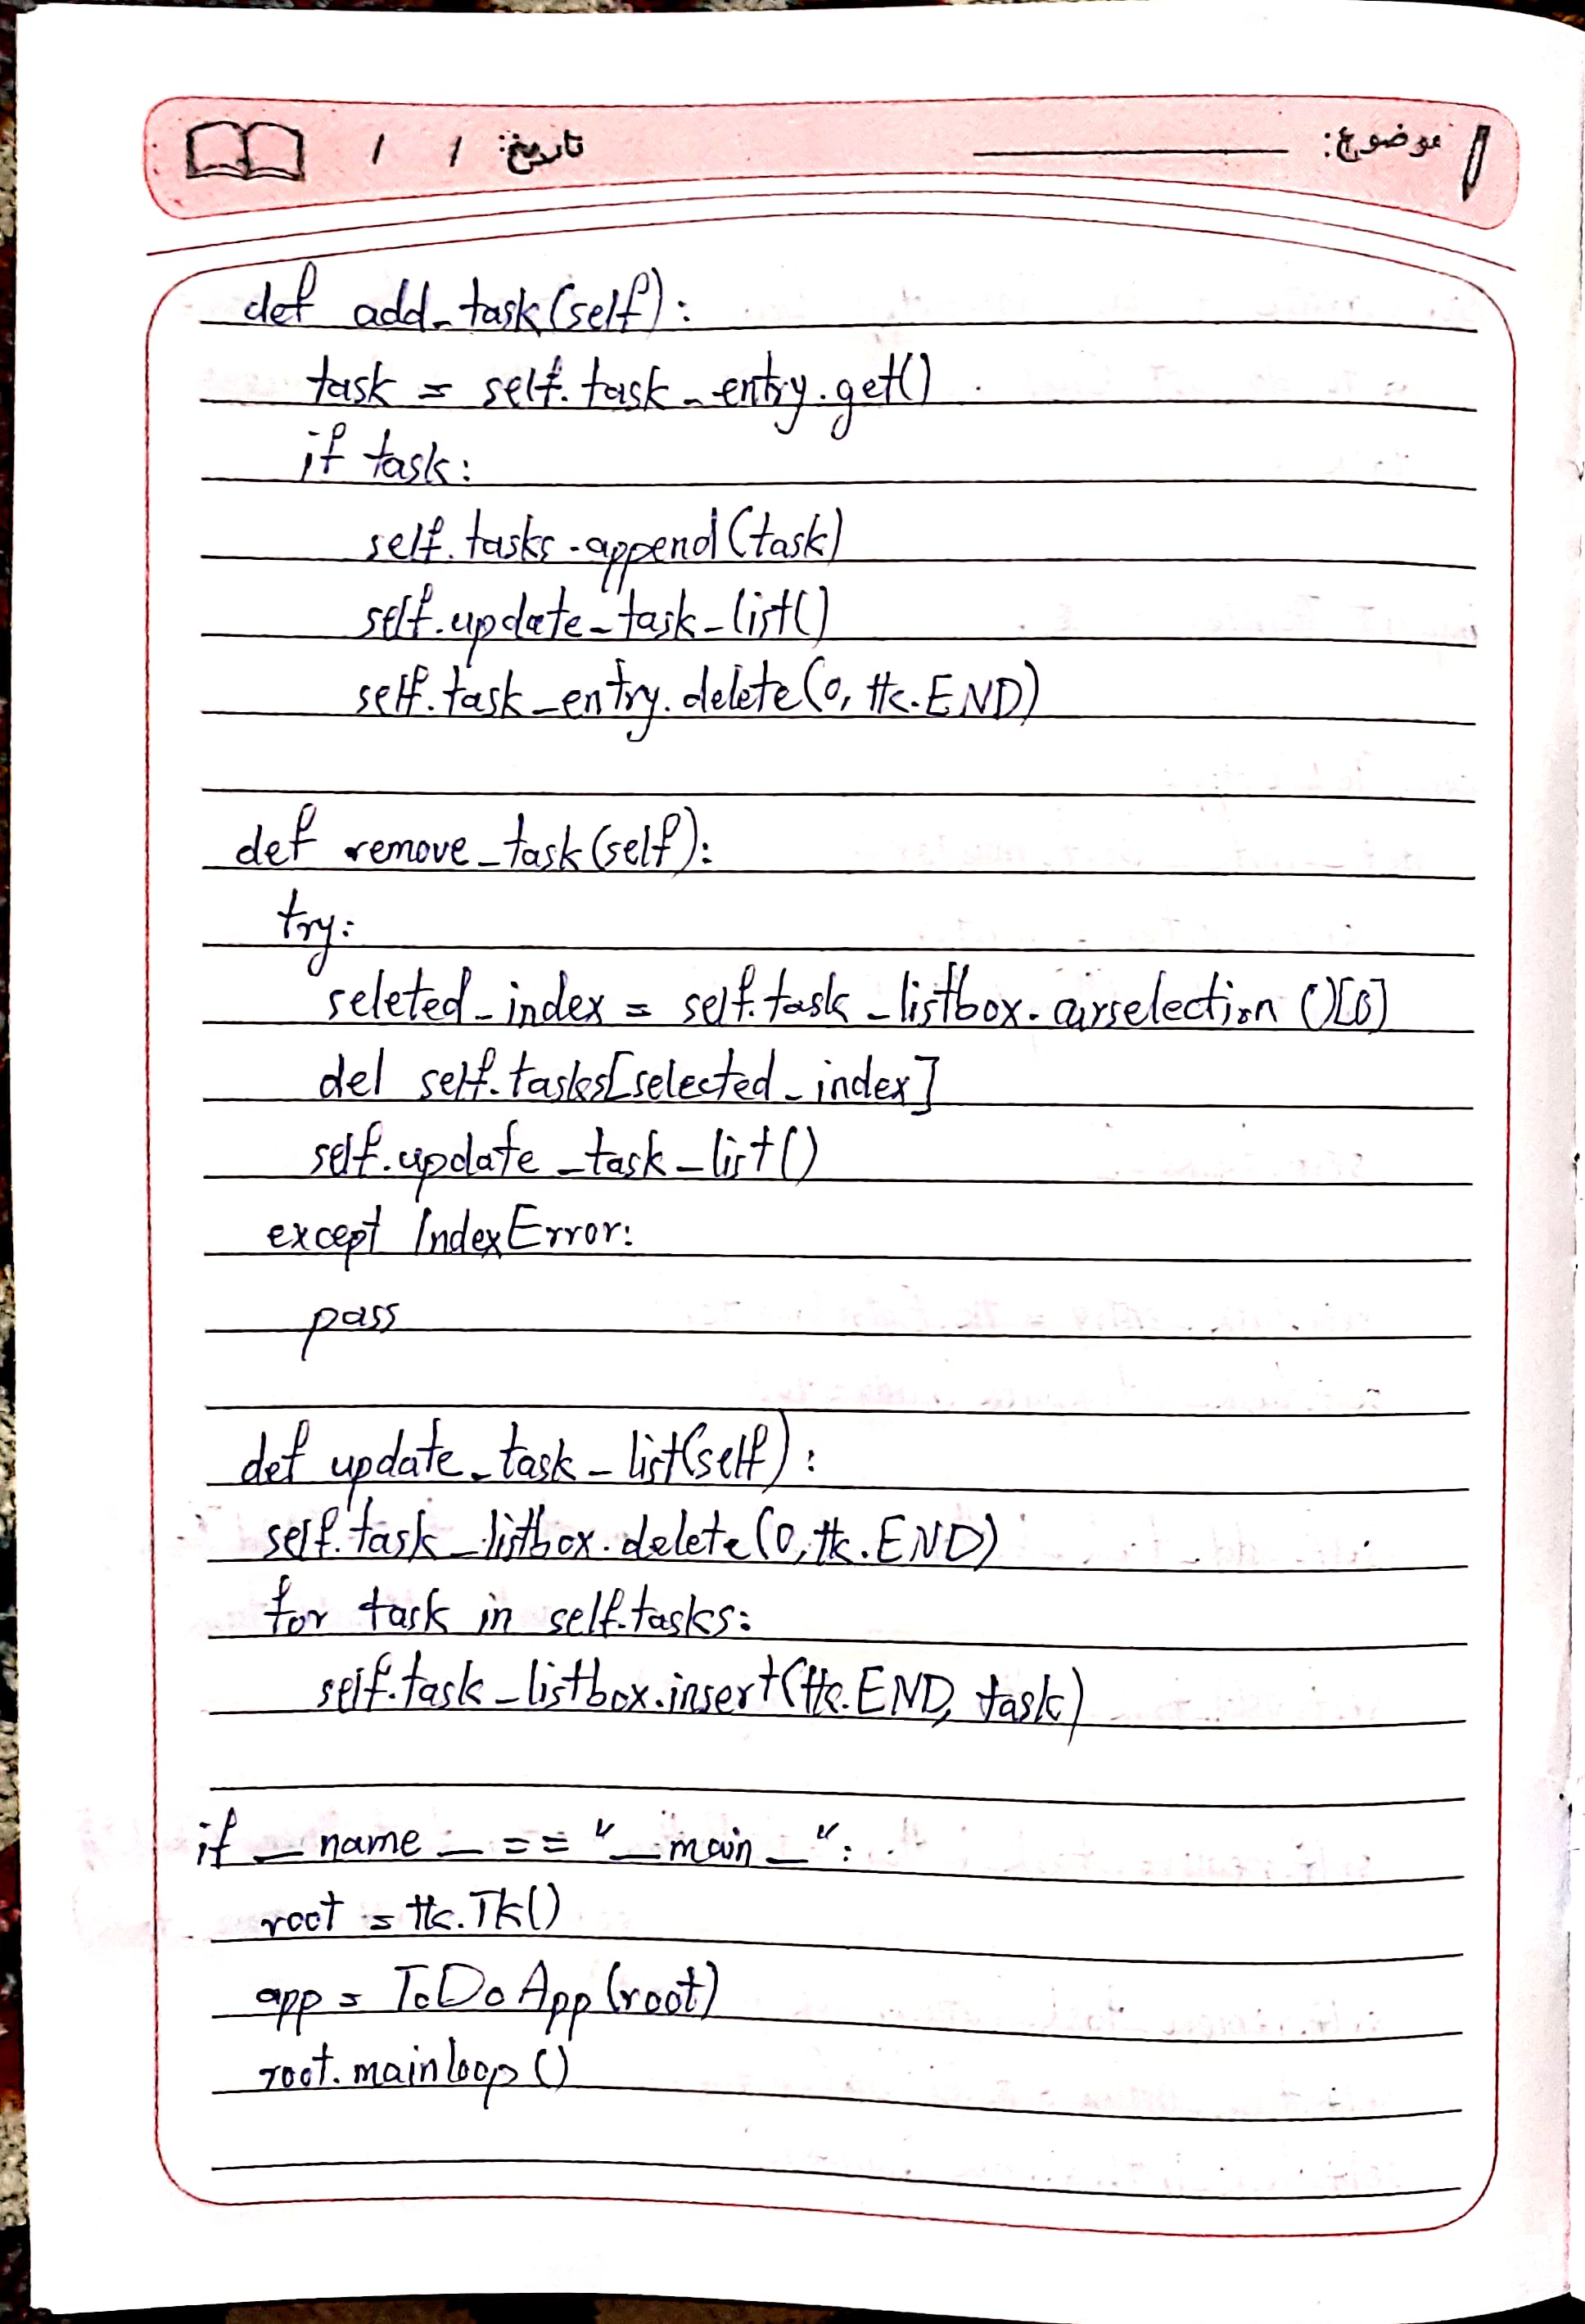 موضوع: تاریخ: / /
def add_task(self):
task = self.task_entry.get()
if task:
self.tasks.append(task)
self.update_task_list()
self.task_entry.delete(0, tk.END)
def remove_task(self):
try:
seleted_index = self.task_listbox.curselection()[0]
del self.tasks[selected_index]
self.update_task_list()
except IndexError:
pass
def update_task_list(self):
self.task_listbox.delete(0, tk.END)
for task in self.tasks:
self.task_listbox.insert(tk.END, task)
if _name_ == "_main_":
root = tk.Tk()
app = ToDoApp(root)
root.mainloop()